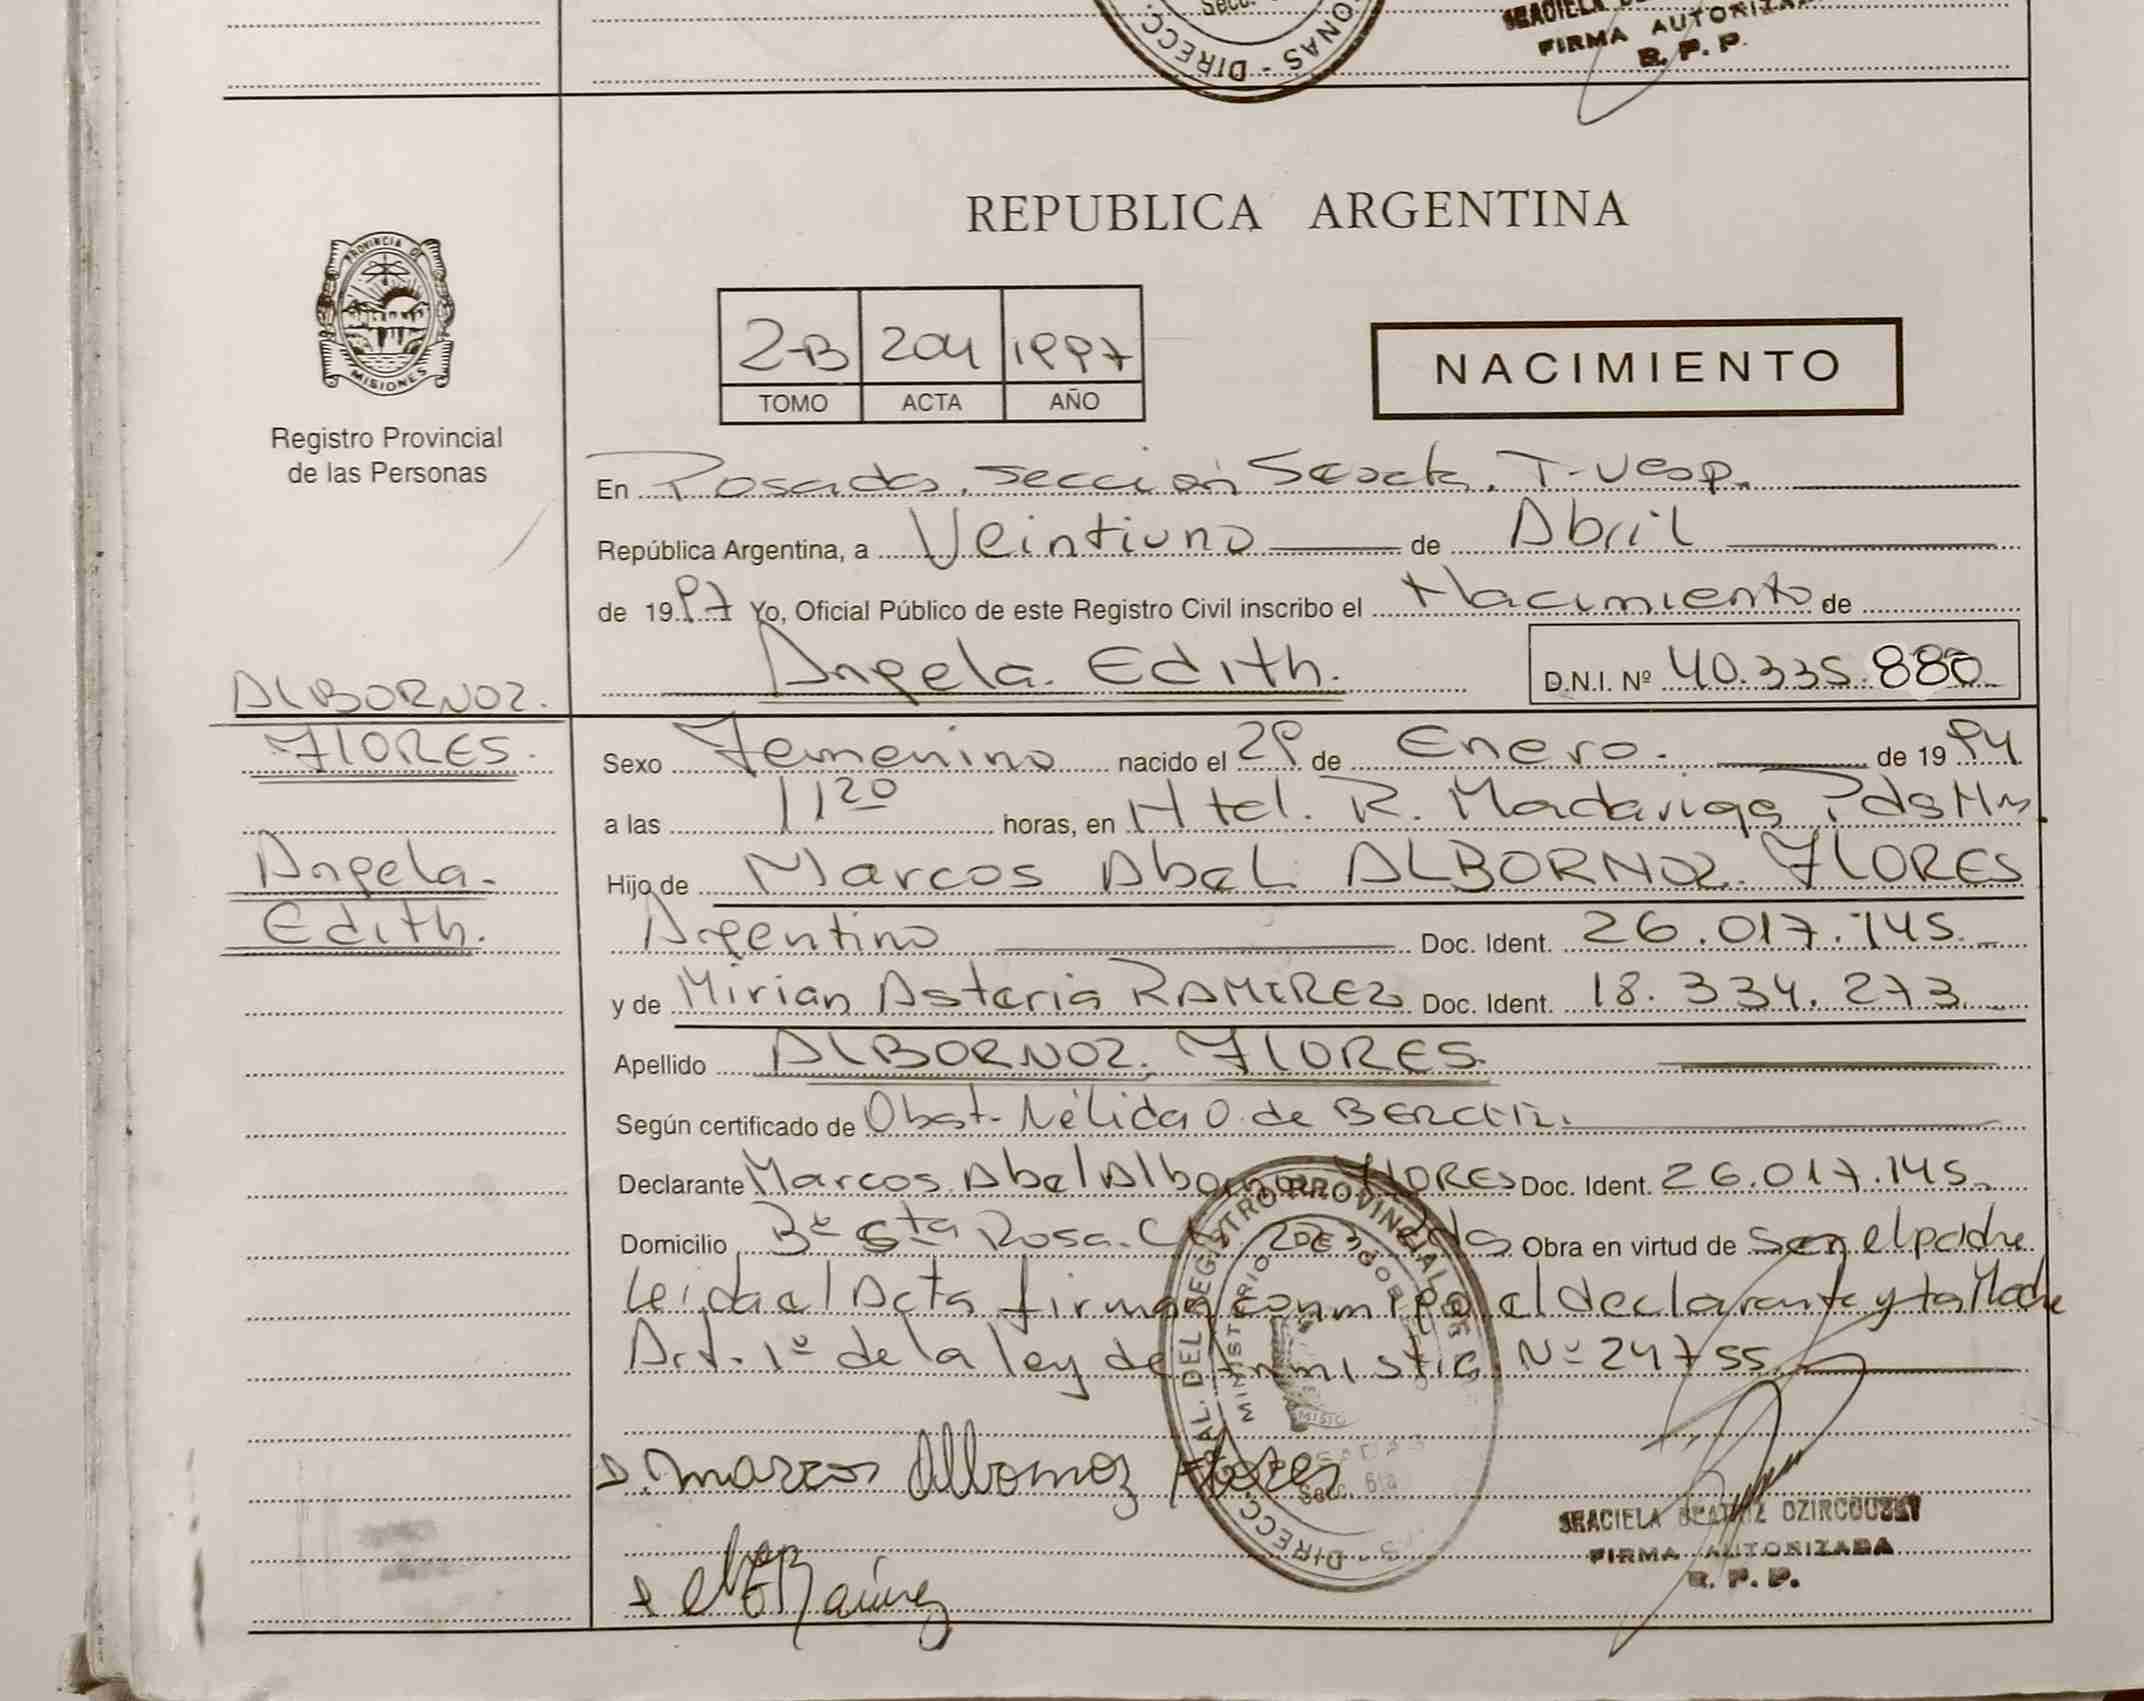 Secc.
ONAS - DIRECC.
FIRMA AUTORIZA
R. P. P.
PROVINCIA DE
MISIONES
Registro Provincial
de las Personas
REPUBLICA ARGENTINA
2-B 204 1997
TOMO ACTA AÑO
NACIMIENTO
En Posadas, sección Sexta. T-Vesp.
República Argentina, a Veintiuno de Abril
de 1997 Yo, Oficial Público de este Registro Civil inscribo el Nacimiento de
Angela. Edith. D.N.I. Nº 40.335.880
ALBORNOZ.
FLORES.
Angela.
Edith.
Sexo Femenino nacido el 29 de Enero. de 1994
a las 11 20 horas, en Htal. R. Madariaga Pds Mns
Hijo de Marcos Abel. ALBORNOZ. FLORES
Argentino Doc. Ident. 26.017.145.
y de Mirian Asteria RAMIREZ Doc. Ident. 18.334.273
Apellido ALBORNOZ. FLORES.
Según certificado de Obst. Nélida O. de
Declarante Marcos Abel Albornoz FLORES Doc. Ident. 26.017.145.
Domicilio Bº Sta Rosa. Obra en virtud de ser el padre
Leída el Acta firman conmigo el declarante y la Madre
Art. 1º de la ley de Amnistia Nº 24755.
Marcos Albornoz Flores
Ramirez
DIRECC. GRAL. DEL REGISTRO PROVINCIAL DE
MINISTERIO DE GOB
MISIO
Secc. 6ta
BEATRIZ
FIRMA AUTORIZADA
R. P. P.